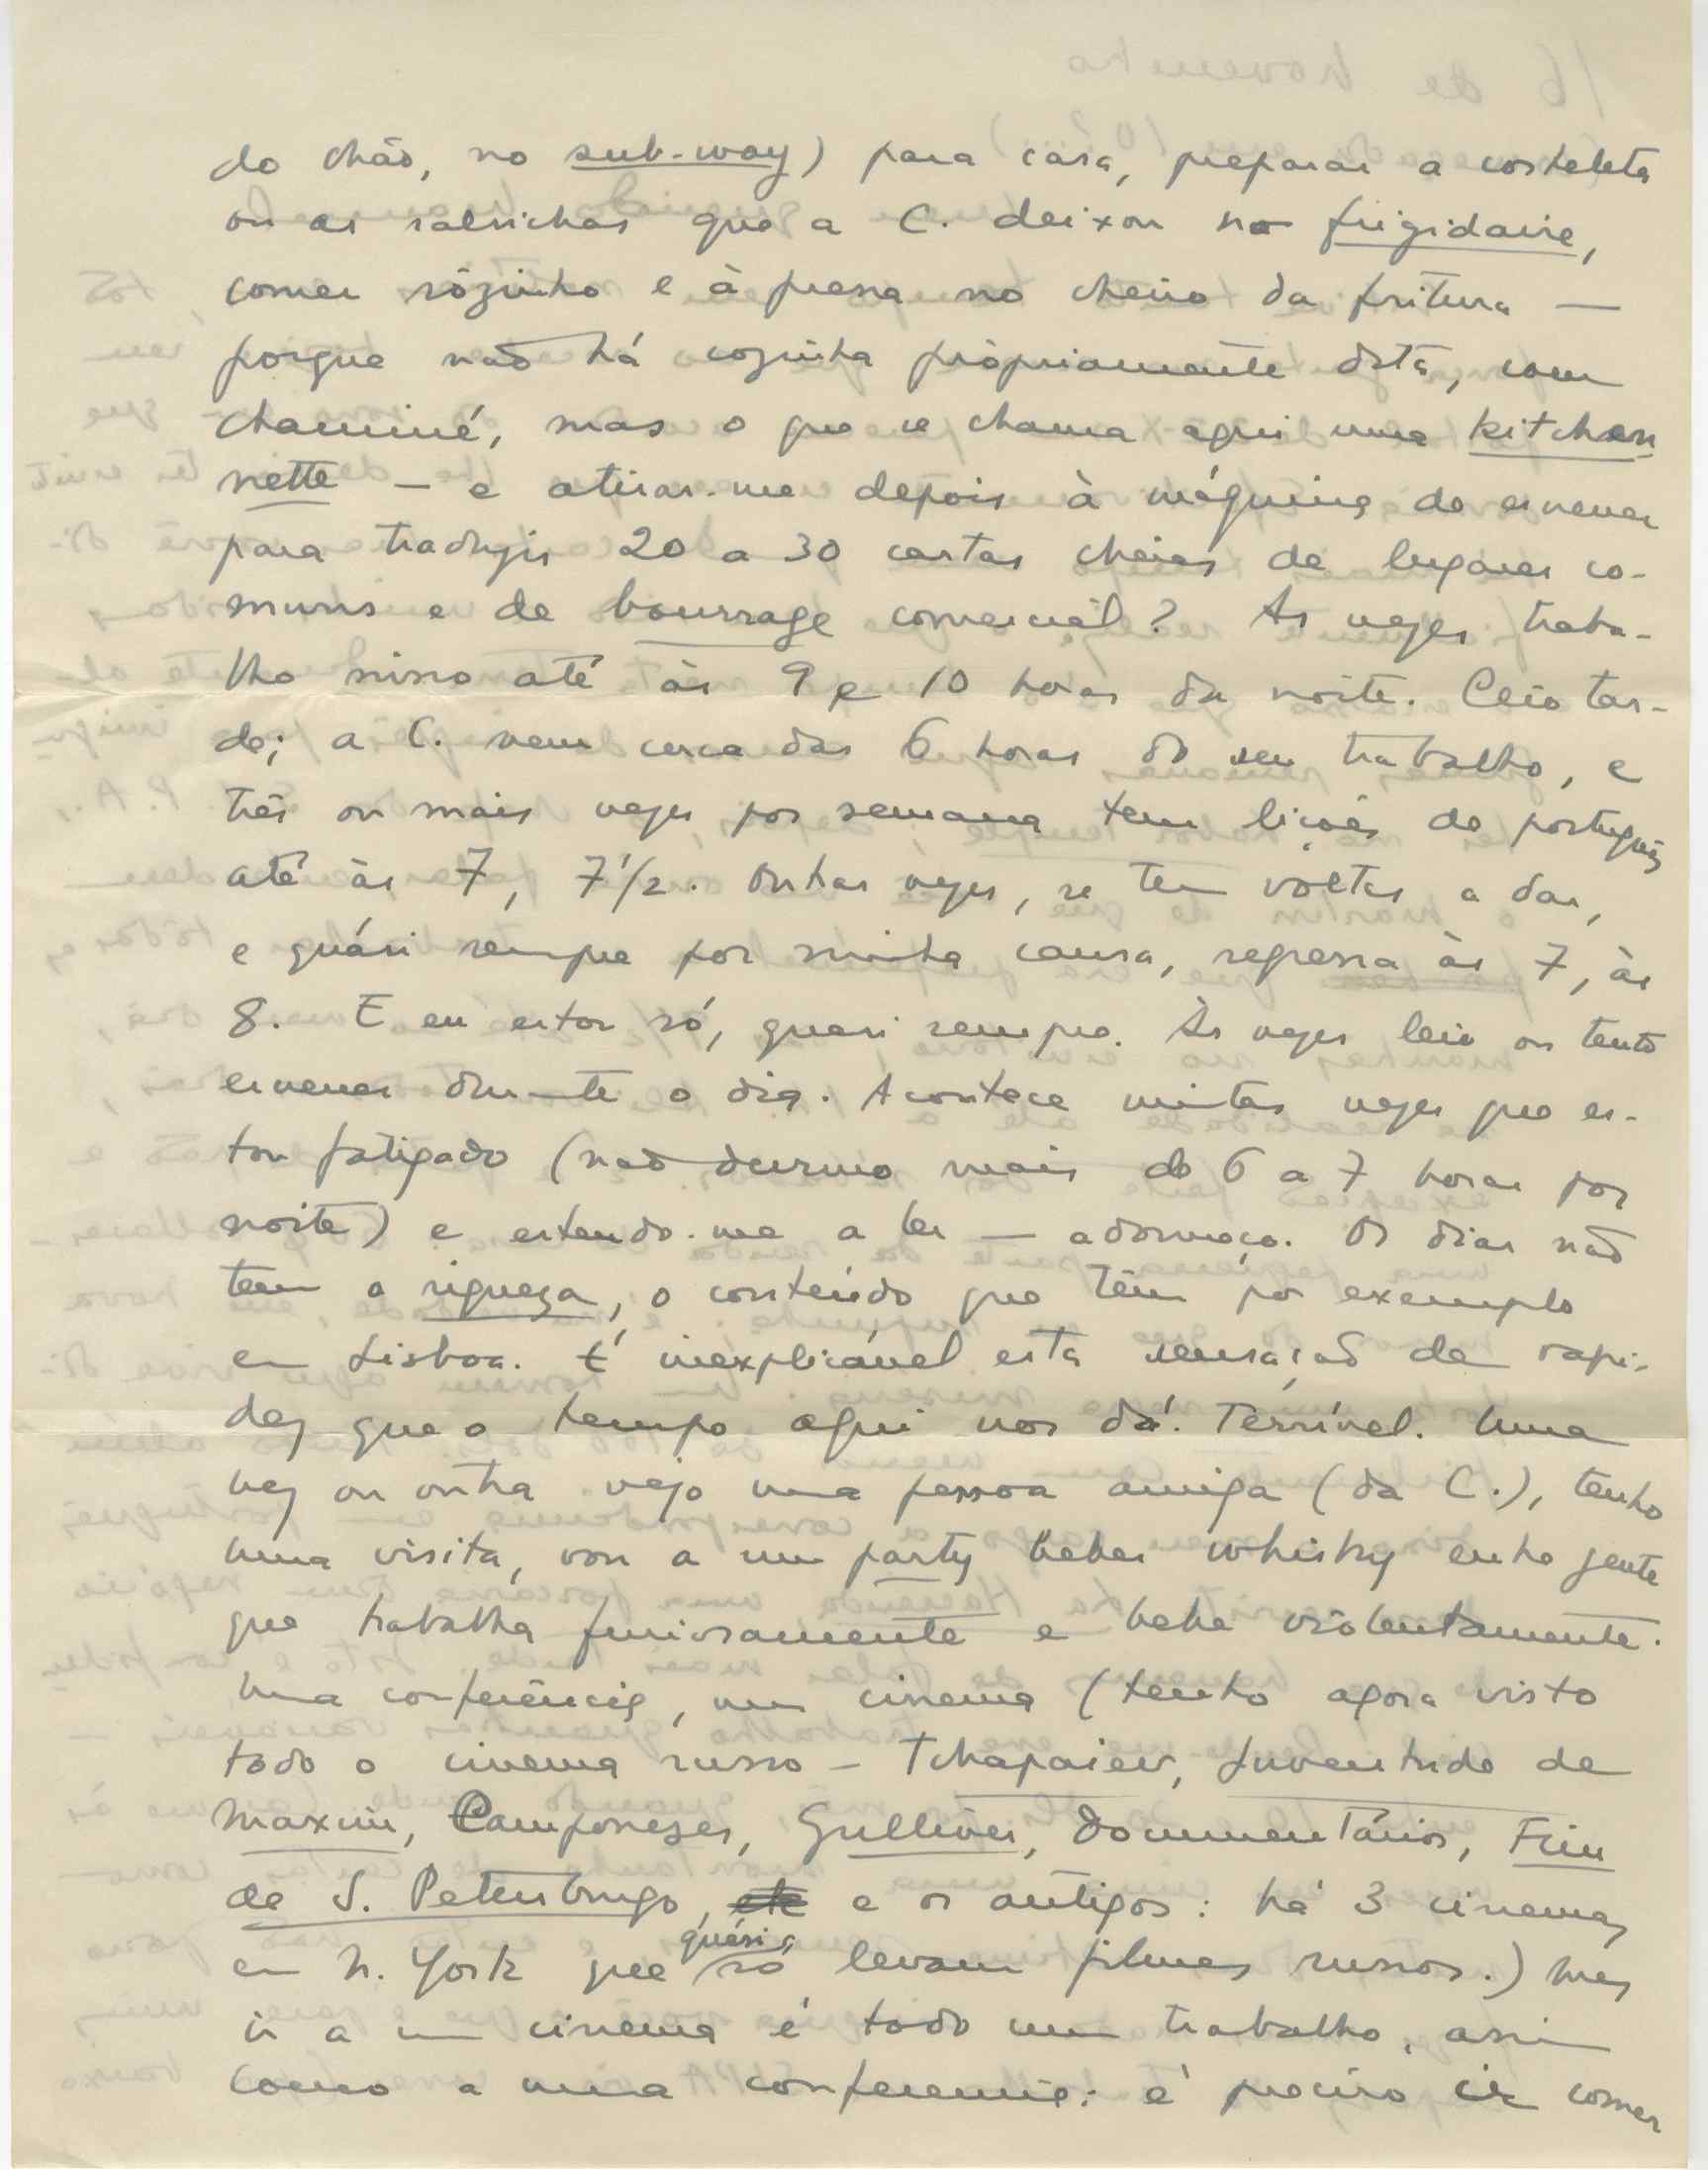 do chão, no sub-way) para casa, preparar a costeleta
ou as salsichas que a C. deixou no frigidaire,
comer sòzinho e à pressa no cheiro da fritura —
porque não há cozinha pròpriamente dita, com
chaminé, mas o que se chama aqui uma kitchen
nette — e atirar-me depois à máquina de escrever
para traduzir 20 a 30 cartas cheias de lugares co-
muns e de bourrage comercial? Às vezes traba-
lho nisso até às 9 e 10 horas da noite. Ceio tar-
de; a C. vem cerca das 6 horas do seu trabalho, e
três ou mais vezes por semana tem lições de português
até às 7, 7 1/2. Outras vezes, se tem voltas a dar,
e quási sempre por minha causa, regressa às 7, às
8. E eu estou só, quasi sempre. Às vezes leio ou tento
escrever durante o dia. Acontece muitas vezes que es-
tou fatigado (não durmo mais de 6 a 7 horas por
noite) e estendo-me a ler — adormeço. Os dias não
tem a riqueza, o conteúdo que têm por exemplo
em Lisboa. É inexplicável esta sensação de rapi-
dez que o tempo aqui nos dá. Terrível. Uma
vez ou outra vejo uma pessoa amiga (da C.), tenho
uma visita, vou a um party beber whisky entre gente
que trabalha furiosamente e bebe violentamente.
Uma conferência, um cinema (tenho agora visto
todo o cinema russo — Tchapaiev, Juventude de
Maxim, Camponeses, Gulliver, Documentários, Fim
de S. Petersburgo, etc e os antigos: há 3 cinemas
em N. York que quási só levam filmes russos.) Mas
ir a um cinema é todo um trabalho, assim
como a uma conferencia: é preciso ir comer